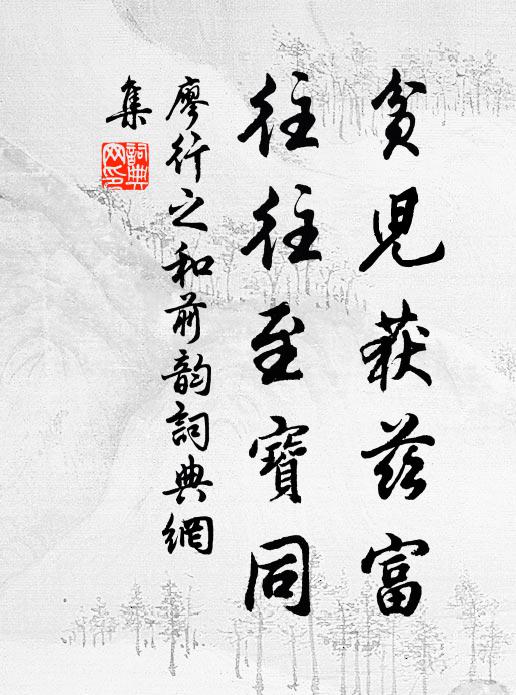 貧児获茲富
往往至寶同
廖行之和前韵詞典網
集
詞典网印